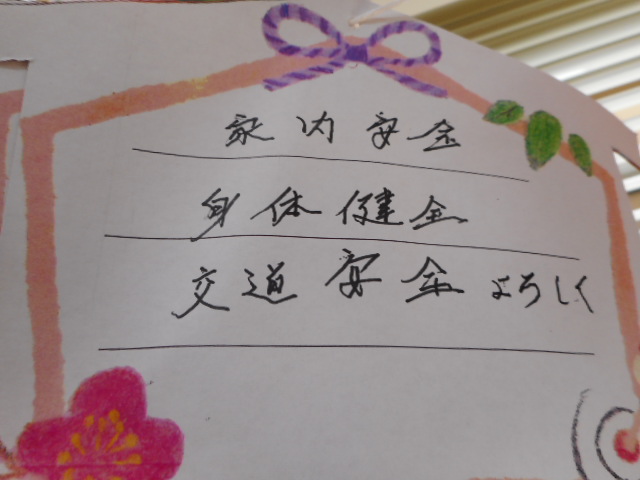 家内安全
身体健全
交通安全よろしく